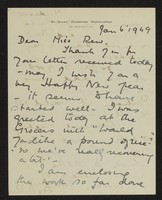 Jan 6 1949
Dear Miss Rew.
Thank you for
your letter received today
- may I wish you a
very Happy New Year
- it seems
started well - I was
greeted today at the
Grocers with "would
you like a pound of rice"
- so we're really recovering
a bit! -
I am enclosing
the work so far done